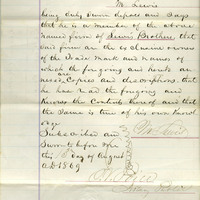 M. Lewis
being duly sworn deposes and says
that he is a member of the above
named firm of Lewis Brothers that
said firm are the exclusive owners
of the Trade Mark and names of
which the forgoing and hereto an
nexed copies and descriptions that
he has read the forgoing and
knows the Contents thereof and that
the same is true of his own knowl
edge
Subscribed and
Sworn to before me
this day of August
A.D. 1869